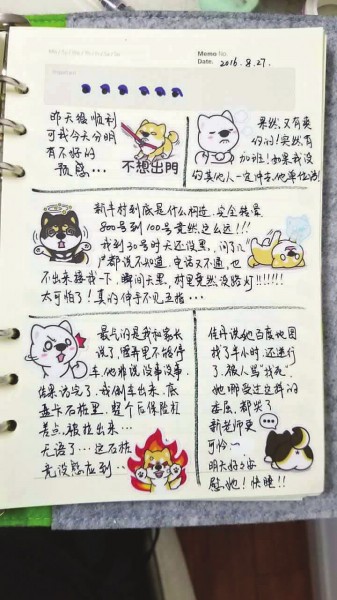 Memo No.
Date. 2016.8.27.
昨天很顺利
可我今天分明
有不好的
预感…
不想出門
果然又有爽
约的!突然有
加班!如果我没
的其他人一定
新丰村到底是什么构造,完全转晕
800号到100号竟然这么远!!!
我到30号时天还没黑,问了几
户都说不知道,电话又不通,也
不出来接我一下,瞬间天黑,村里竟然没路灯!!!!!!
太可怕了!真的伸手不见五指…
最后的是我和家长
说了,里不能停
车,他非说没事没事
结果访完了,我倒车出来,底
盘卡石桩里,整个后保险杠
差点被拉出来…
无语了…这石桩
竟没感应到…
佳丹说她百度地图
找了半小时,还进行
了,被人骂"找死",
她哪受过这样的
委屈,都哭了
新老师更
可怜~
明天好好安
慰她!快睡!!